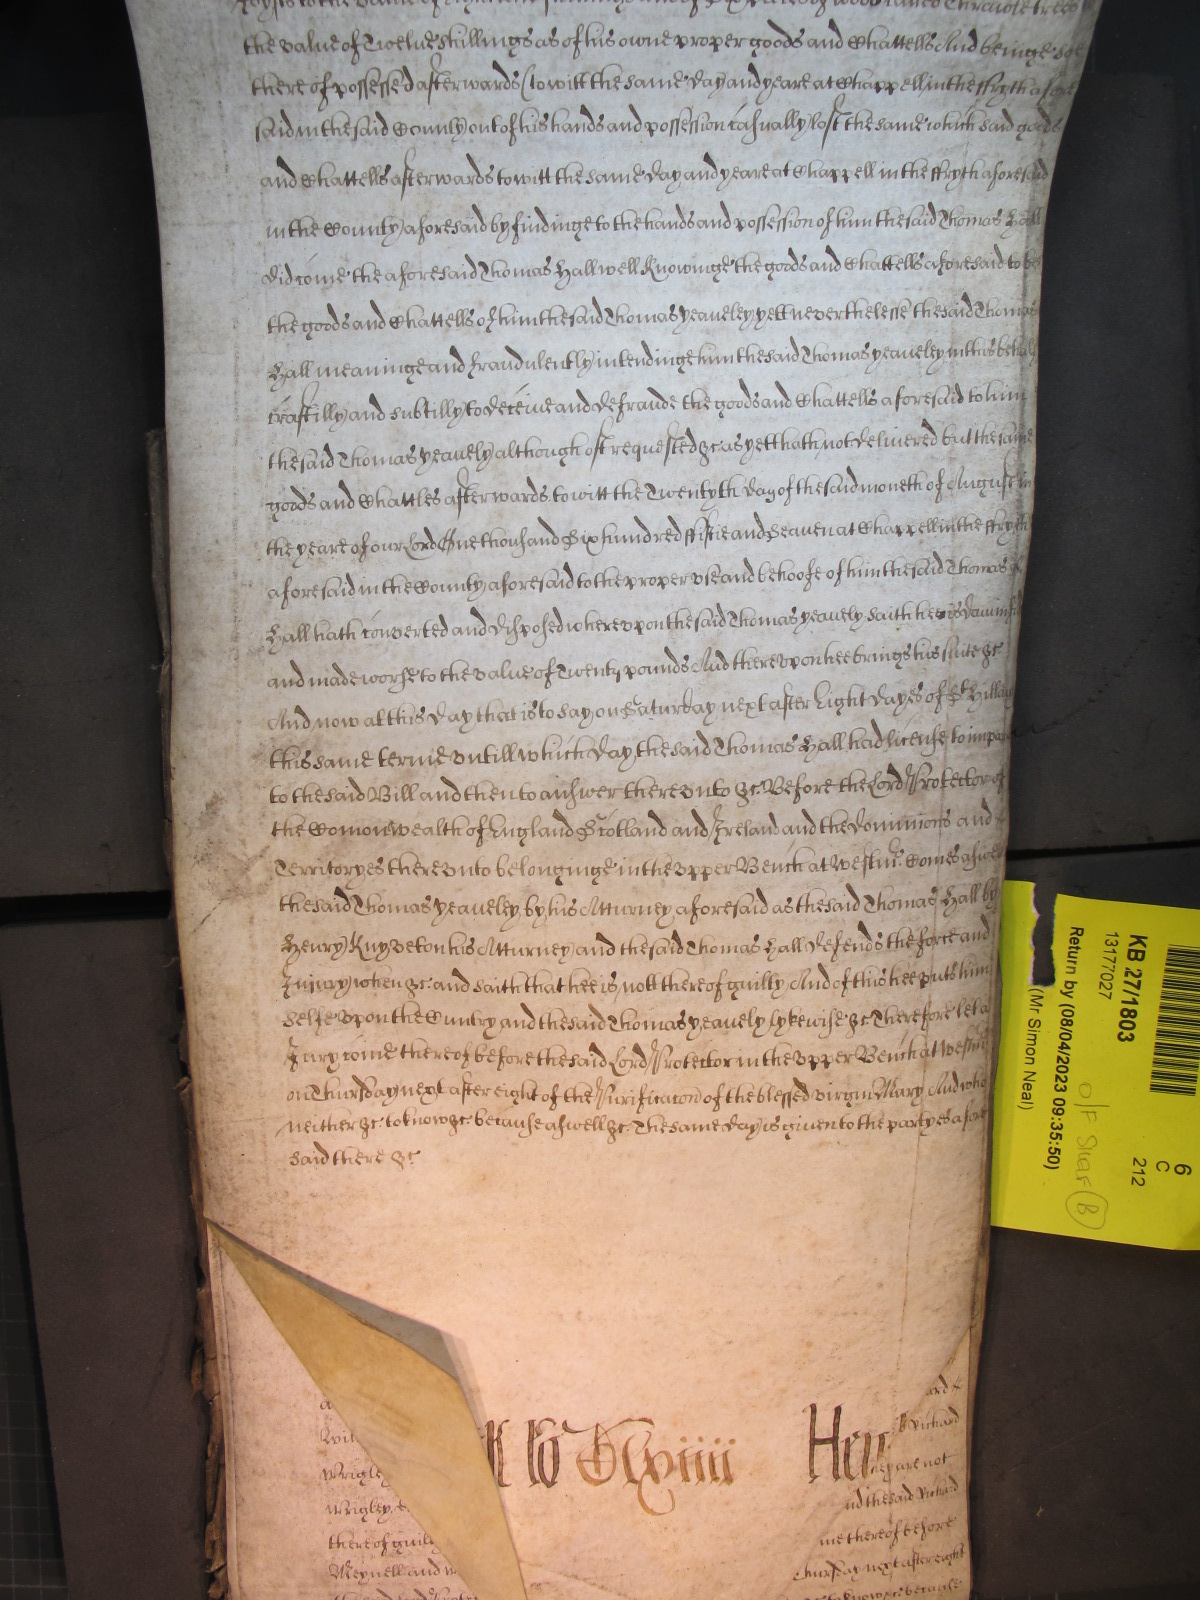 the value of Twelve shillings as of his owne proper goods and Chattells And beinge soe
thereof possessed afterwards (to witt the same day and yeare at Chappell in the ffryth afore
said in the said County out of his hands and possession casually lost the same which said goods
and Chattells afterwards to witt the same day and yeare at Chappell in the ffryth aforesaid
in the County aforesaid by findinge to the hands and possession of him the said Thomas Hall
did come the aforesaid Thomas Hall well Knowinge the goods and Chattells aforesaid to be
the goods and Chattells of him the said Thomas yeaveley yett neverthelesse the said Thomas
Hall meaninge and fraudulently intendinge him the said Thomas yeaveley in this behalf
craftilly and subtilly to deceive and defraude the goods and Chattells aforesaid to him
the said Thomas yeavely although oft requested &c. as yett hath not delivered but the same
goods and Chattles afterwards to witt the Twentyth day of the said moneth of August in
the yeare of our Lord One thousand Six hundred fiftie and Seaven at Chappell in the ffryth
aforesaid in the County aforesaid to the proper use and behoofe of him the said Thomas
Hall hath converted and disposed whereupon the said Thomas yeavely saith hee is damnif
and made worse to the value of Twenty pounds And thereupon hee brings his suite &c.
And now at this day that is to say on Saturday next after Eight dayes of St Hillary
this same terme untill which day the said Thomas Hall had license to impar
to the said Bill and then to answer thereunto &c. Before the Lord Protector of
the Comonwealth of England Scotland and Ireland and the dominions and
Territoryes thereunto belonginge in the upper Bench at Westmr. Comes aswell
the said Thomas yeaveley by his Atturney aforesaid as the said Thomas Hall by
Henry Knyveton his Atturney and the said Thomas Hall defends the force and
Injury when &c. and saith that hee is nott thereof guilty And of this hee putts him
selfe upon the Cuntry and the said Thomas yeavely lykewise &c. Therefore let a
Jury come thereof before the said Lord Protector in the upper Bench at Westmr
on Thursday next after eight of the Purificacon of the blessed virgin Mary And who
neither &c. to know &c. because aswell &c. The same day is given to the partyes afore
said there &c.
ard
Richard
Wrigley
ey are not
Wrigley
nd the said Richard
thereof guilty
me thereof before
Meynell and
hursday next after eight
to know &c. because
KB 27/1803
13177027
Return by (08/04/2023 09:35:50)
(Mr Simon Neal)
6
C
212
O/F Shelf (B)